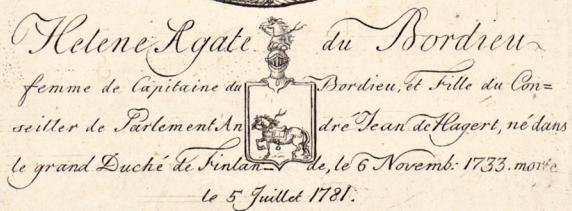 Helene Agate du Bordieu
femme de Capitaine du Bordieu, et Fille du Con=
seiller de Parlement An dré Jean de Hagert, né dans
le grand Duché de Finlan- de, le 6 Novemb: 1733. morte
le 5 Juillet 1781.